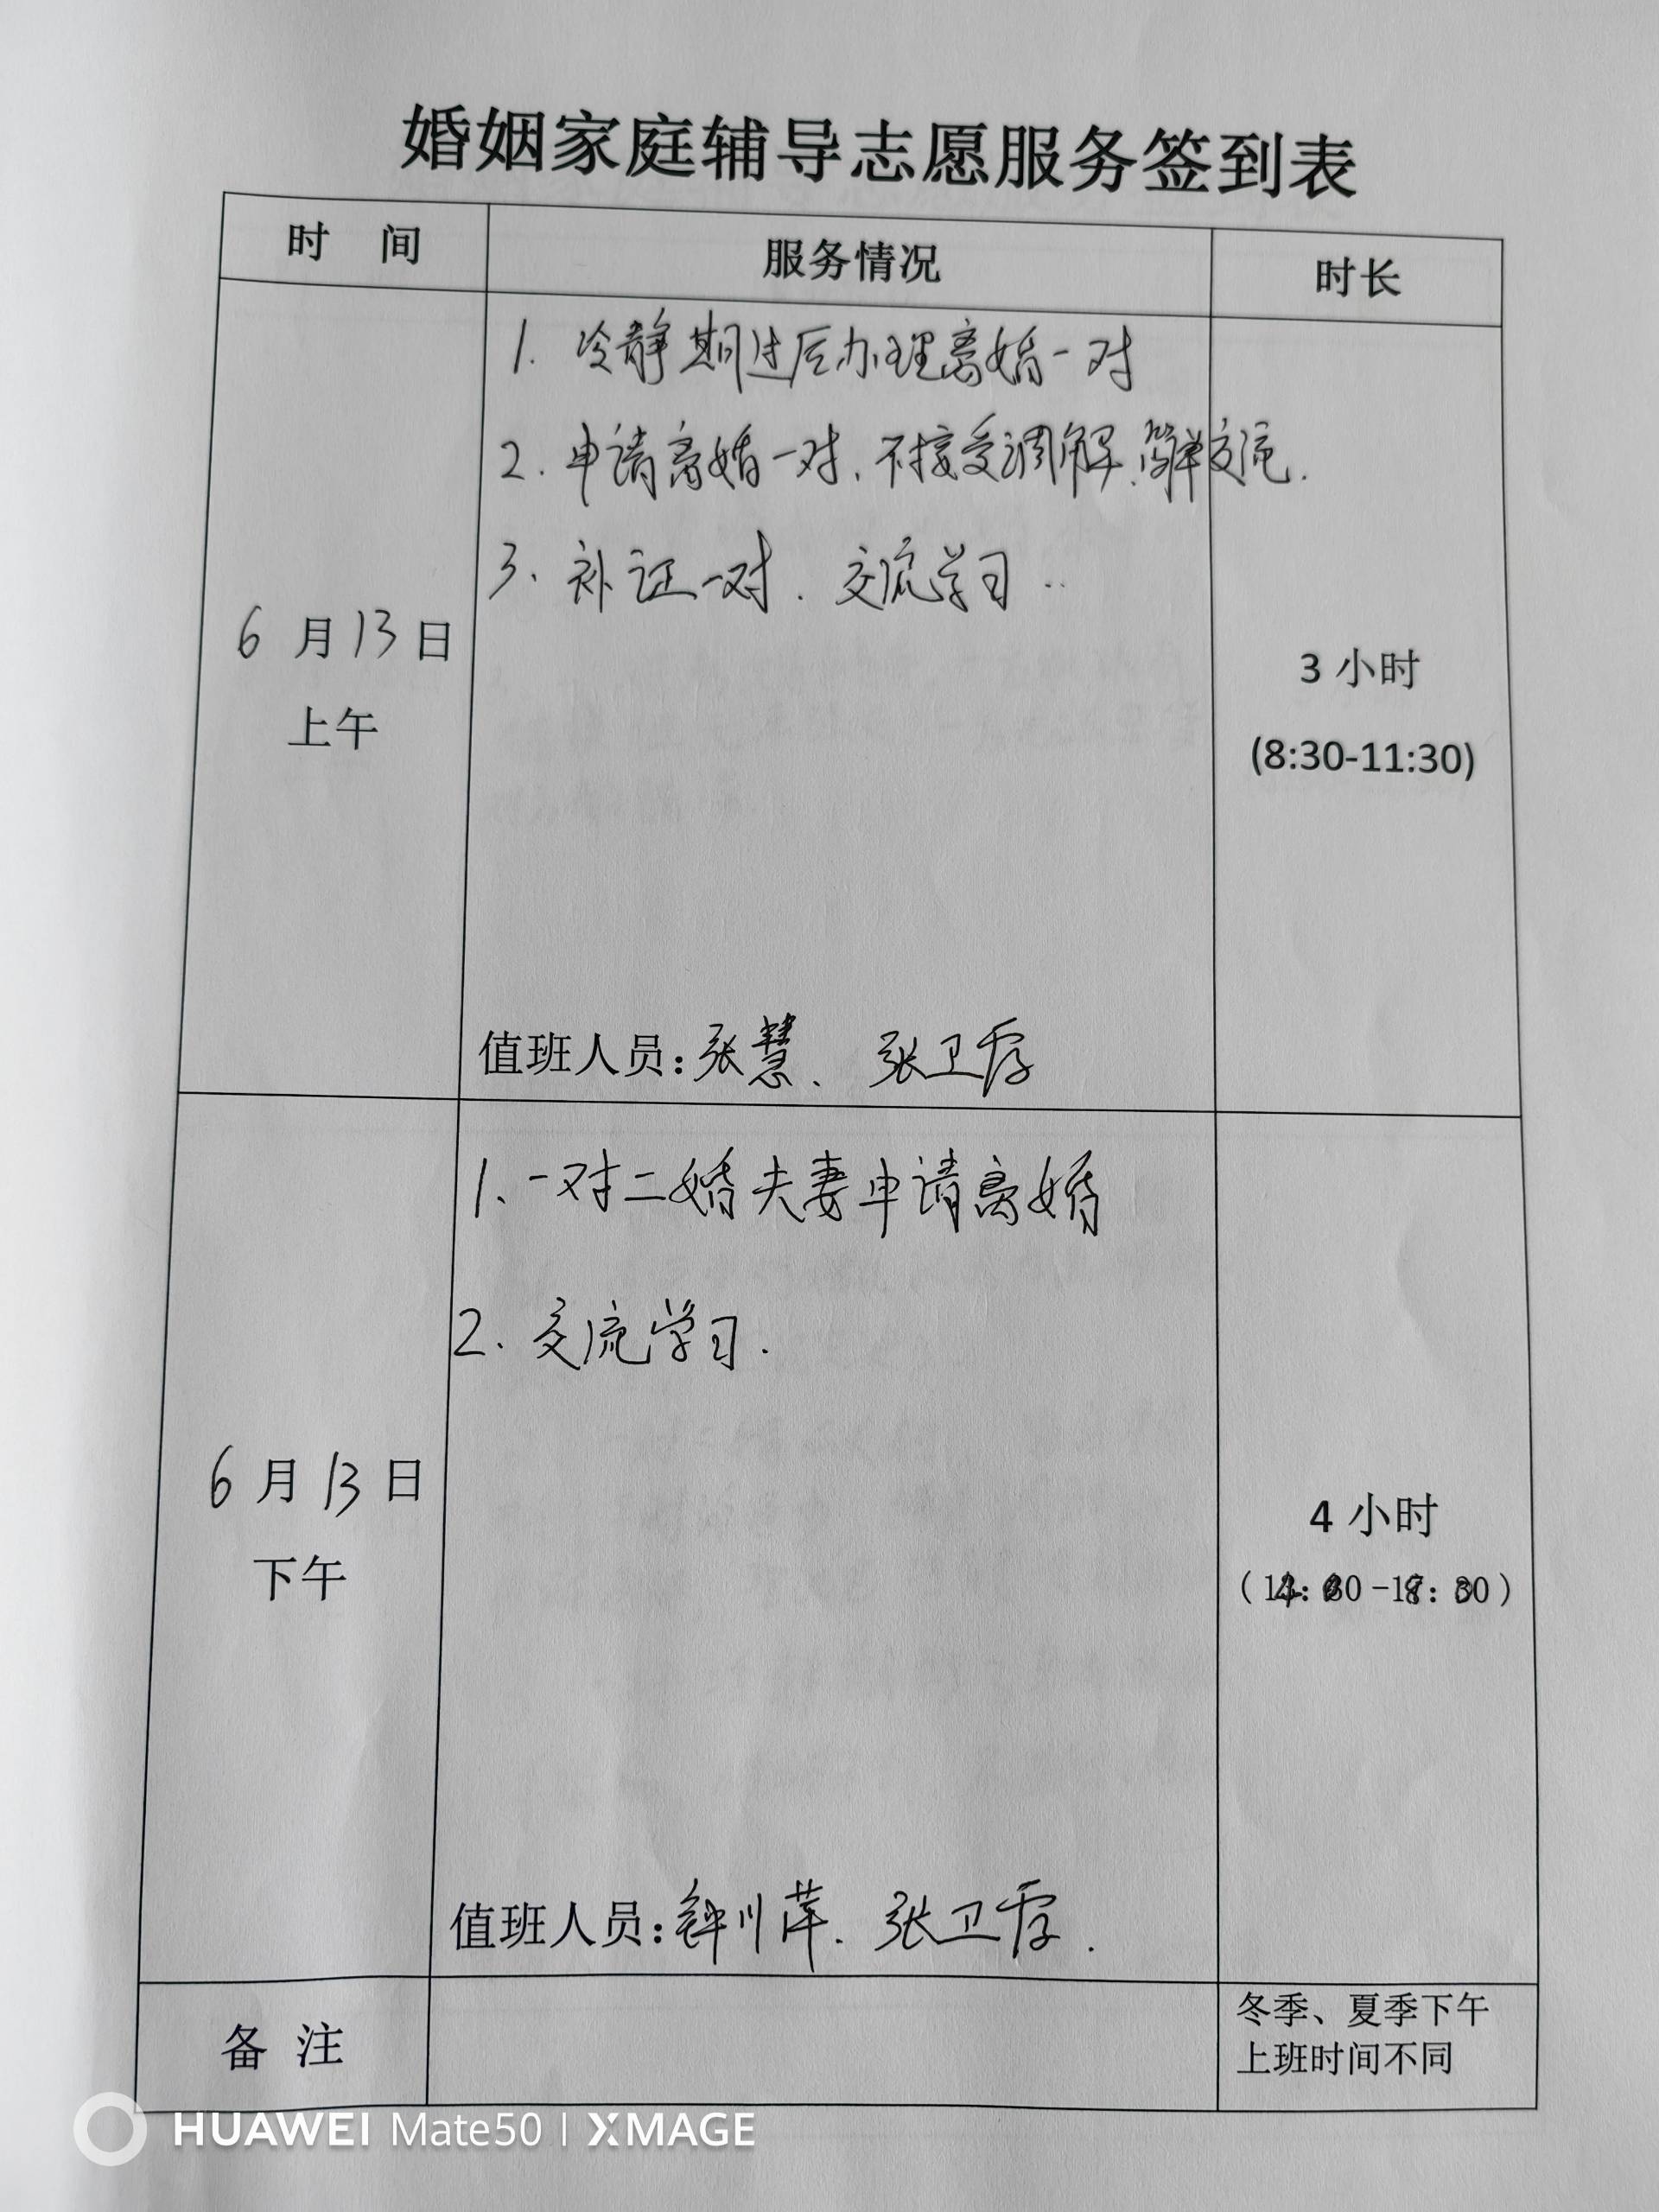 婚姻家庭辅导志愿服务签到表
时 间 服务情况 时长
1. 冷静期过后办理离婚一对
2. 申请离婚一对、不接受调解、简单交流.
3. 补证一对. 交流学习..
6 月 13 日
上午
3 小时
(8:30-11:30)
值班人员:张慧、张卫霞
1、一对二婚夫妻申请离婚
2. 交流学习.
6 月 13 日
下午
4 小时
值班人员:钟川萍. 张卫霞.
备 注
冬季、夏季下午
上班时间不同
HUAWEI Mate50 | XMAGE